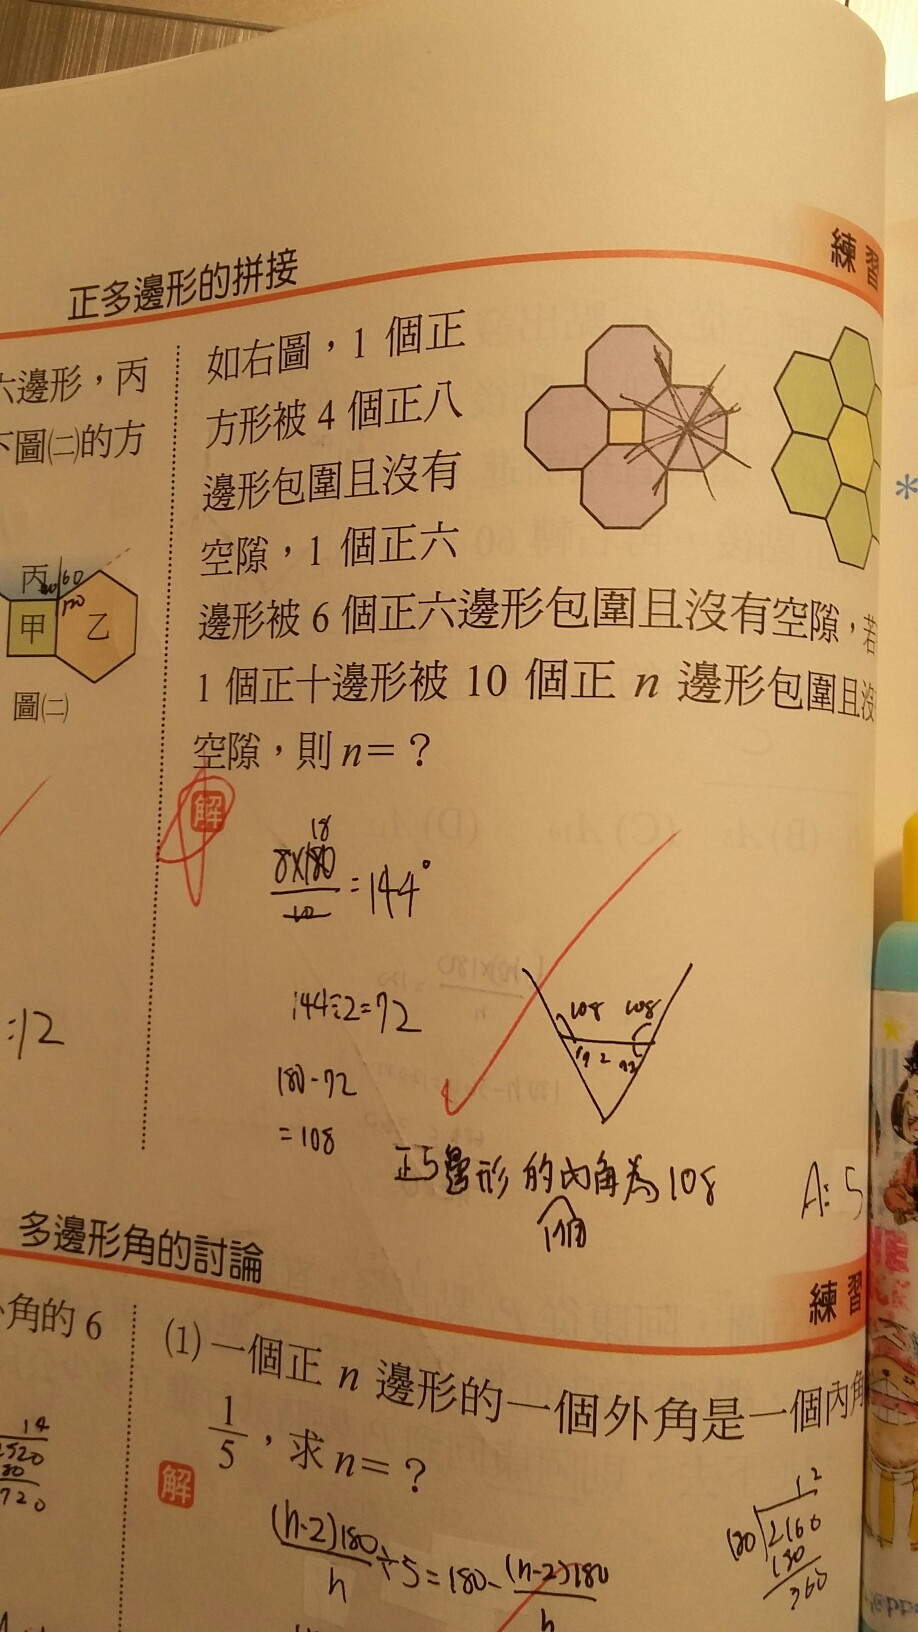 練習
正多邊形的拼接
六邊形，丙
下圖㈡的方
丙
60
120
甲
乙
圖㈡
:12
如右圖，1 個正
方形被 4 個正八
邊形包圍且沒有
空隙，1 個正六
邊形被 6 個正六邊形包圍且沒有空隙，若
1 個正十邊形被 10 個正 n 邊形包圍且沒
空隙，則 n＝？
解
18
8×180
10
=144°
144÷2=72
180-72
=108
108 108
72
正5邊形的內角為108
1個
A: 5
練習
多邊形角的討論
外角的 6
14
2520
720
(1) 一個正 n 邊形的一個外角是一個內角
1
5
，求 n＝？
解
(n-2)180
n
÷5=180-
(n-2)180
n
12
180
2160
180
360
*